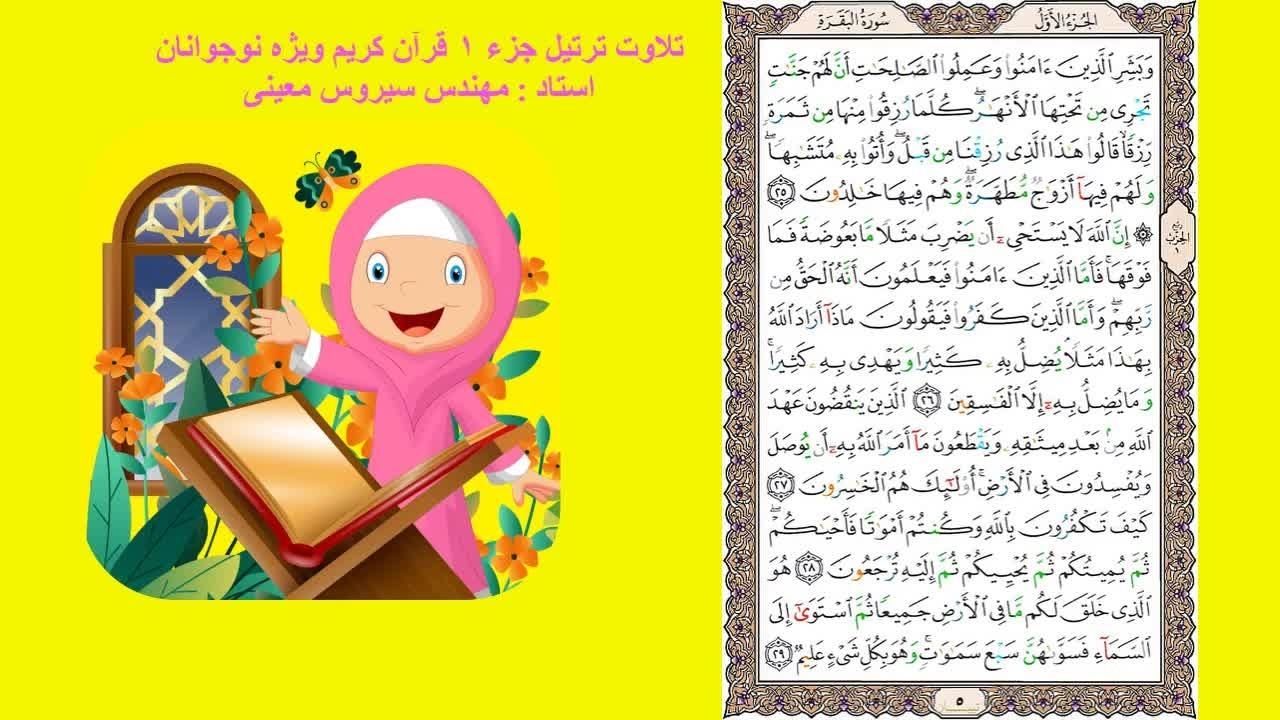 تلاوت ترتیل جزء ۱ قرآن کریم ویژه نوجوانان
استاد : مهندس سیروس معینی
الجُزْءُ الأَوَّلُ
سُورَةُ البَقَرَةِ
وَبَشِّرِ ٱلَّذِينَ ءَامَنُوا۟ وَعَمِلُوا۟ ٱلصَّـٰلِحَـٰتِ أَنَّ لَهُمْ جَنَّـٰتٍ
تَجْرِى مِن تَحْتِهَا ٱلْأَنْهَـٰرُ ۖ كُلَّمَا رُزِقُوا۟ مِنْهَا مِن ثَمَرَةٍ
رِّزْقًا ۙ قَالُوا۟ هَـٰذَا ٱلَّذِى رُزِقْنَا مِن قَبْلُ ۖ وَأُتُوا۟ بِهِۦ مُتَشَـٰبِهًا ۖ
وَلَهُمْ فِيهَآ أَزْوَٰجٌ مُّطَهَّرَةٌ ۖ وَهُمْ فِيهَا خَـٰلِدُونَ ٢٥
۞ إِنَّ ٱللَّهَ لَا يَسْتَحْىِۦٓ أَن يَضْرِبَ مَثَلًا مَّا بَعُوضَةً فَمَا
فَوْقَهَا ۚ فَأَمَّا ٱلَّذِينَ ءَامَنُوا۟ فَيَعْلَمُونَ أَنَّهُ ٱلْحَقُّ مِن
رَّبِّهِمْ ۖ وَأَمَّا ٱلَّذِينَ كَفَرُوا۟ فَيَقُولُونَ مَاذَآ أَرَادَ ٱللَّهُ
بِهَـٰذَا مَثَلًا ۘ يُضِلُّ بِهِۦ كَثِيرًا وَيَهْدِى بِهِۦ كَثِيرًا ۚ
وَمَا يُضِلُّ بِهِۦٓ إِلَّا ٱلْفَـٰسِقِينَ ٢٦ ٱلَّذِينَ يَنقُضُونَ عَهْدَ
ٱللَّهِ مِنۢ بَعْدِ مِيثَـٰقِهِۦ وَيَقْطَعُونَ مَآ أَمَرَ ٱللَّهُ بِهِۦٓ أَن يُوصَلَ
وَيُفْسِدُونَ فِى ٱلْأَرْضِ ۚ أُو۟لَـٰٓئِكَ هُمُ ٱلْخَـٰسِرُونَ ٢٧
كَيْفَ تَكْفُرُونَ بِٱللَّهِ وَكُنتُمْ أَمْوَٰتًا فَأَحْيَـٰكُمْ ۖ
ثُمَّ يُمِيتُكُمْ ثُمَّ يُحْيِيكُمْ ثُمَّ إِلَيْهِ تُرْجَعُونَ ٢٨ هُوَ
ٱلَّذِى خَلَقَ لَكُم مَّا فِى ٱلْأَرْضِ جَمِيعًا ثُمَّ ٱسْتَوَىٰٓ إِلَى
ٱلسَّمَآءِ فَسَوَّىٰهُنَّ سَبْعَ سَمَـٰوَٰتٍ ۚ وَهُوَ بِكُلِّ شَىْءٍ عَلِيمٌ ٢٩
ربع
الحزب
١
٥